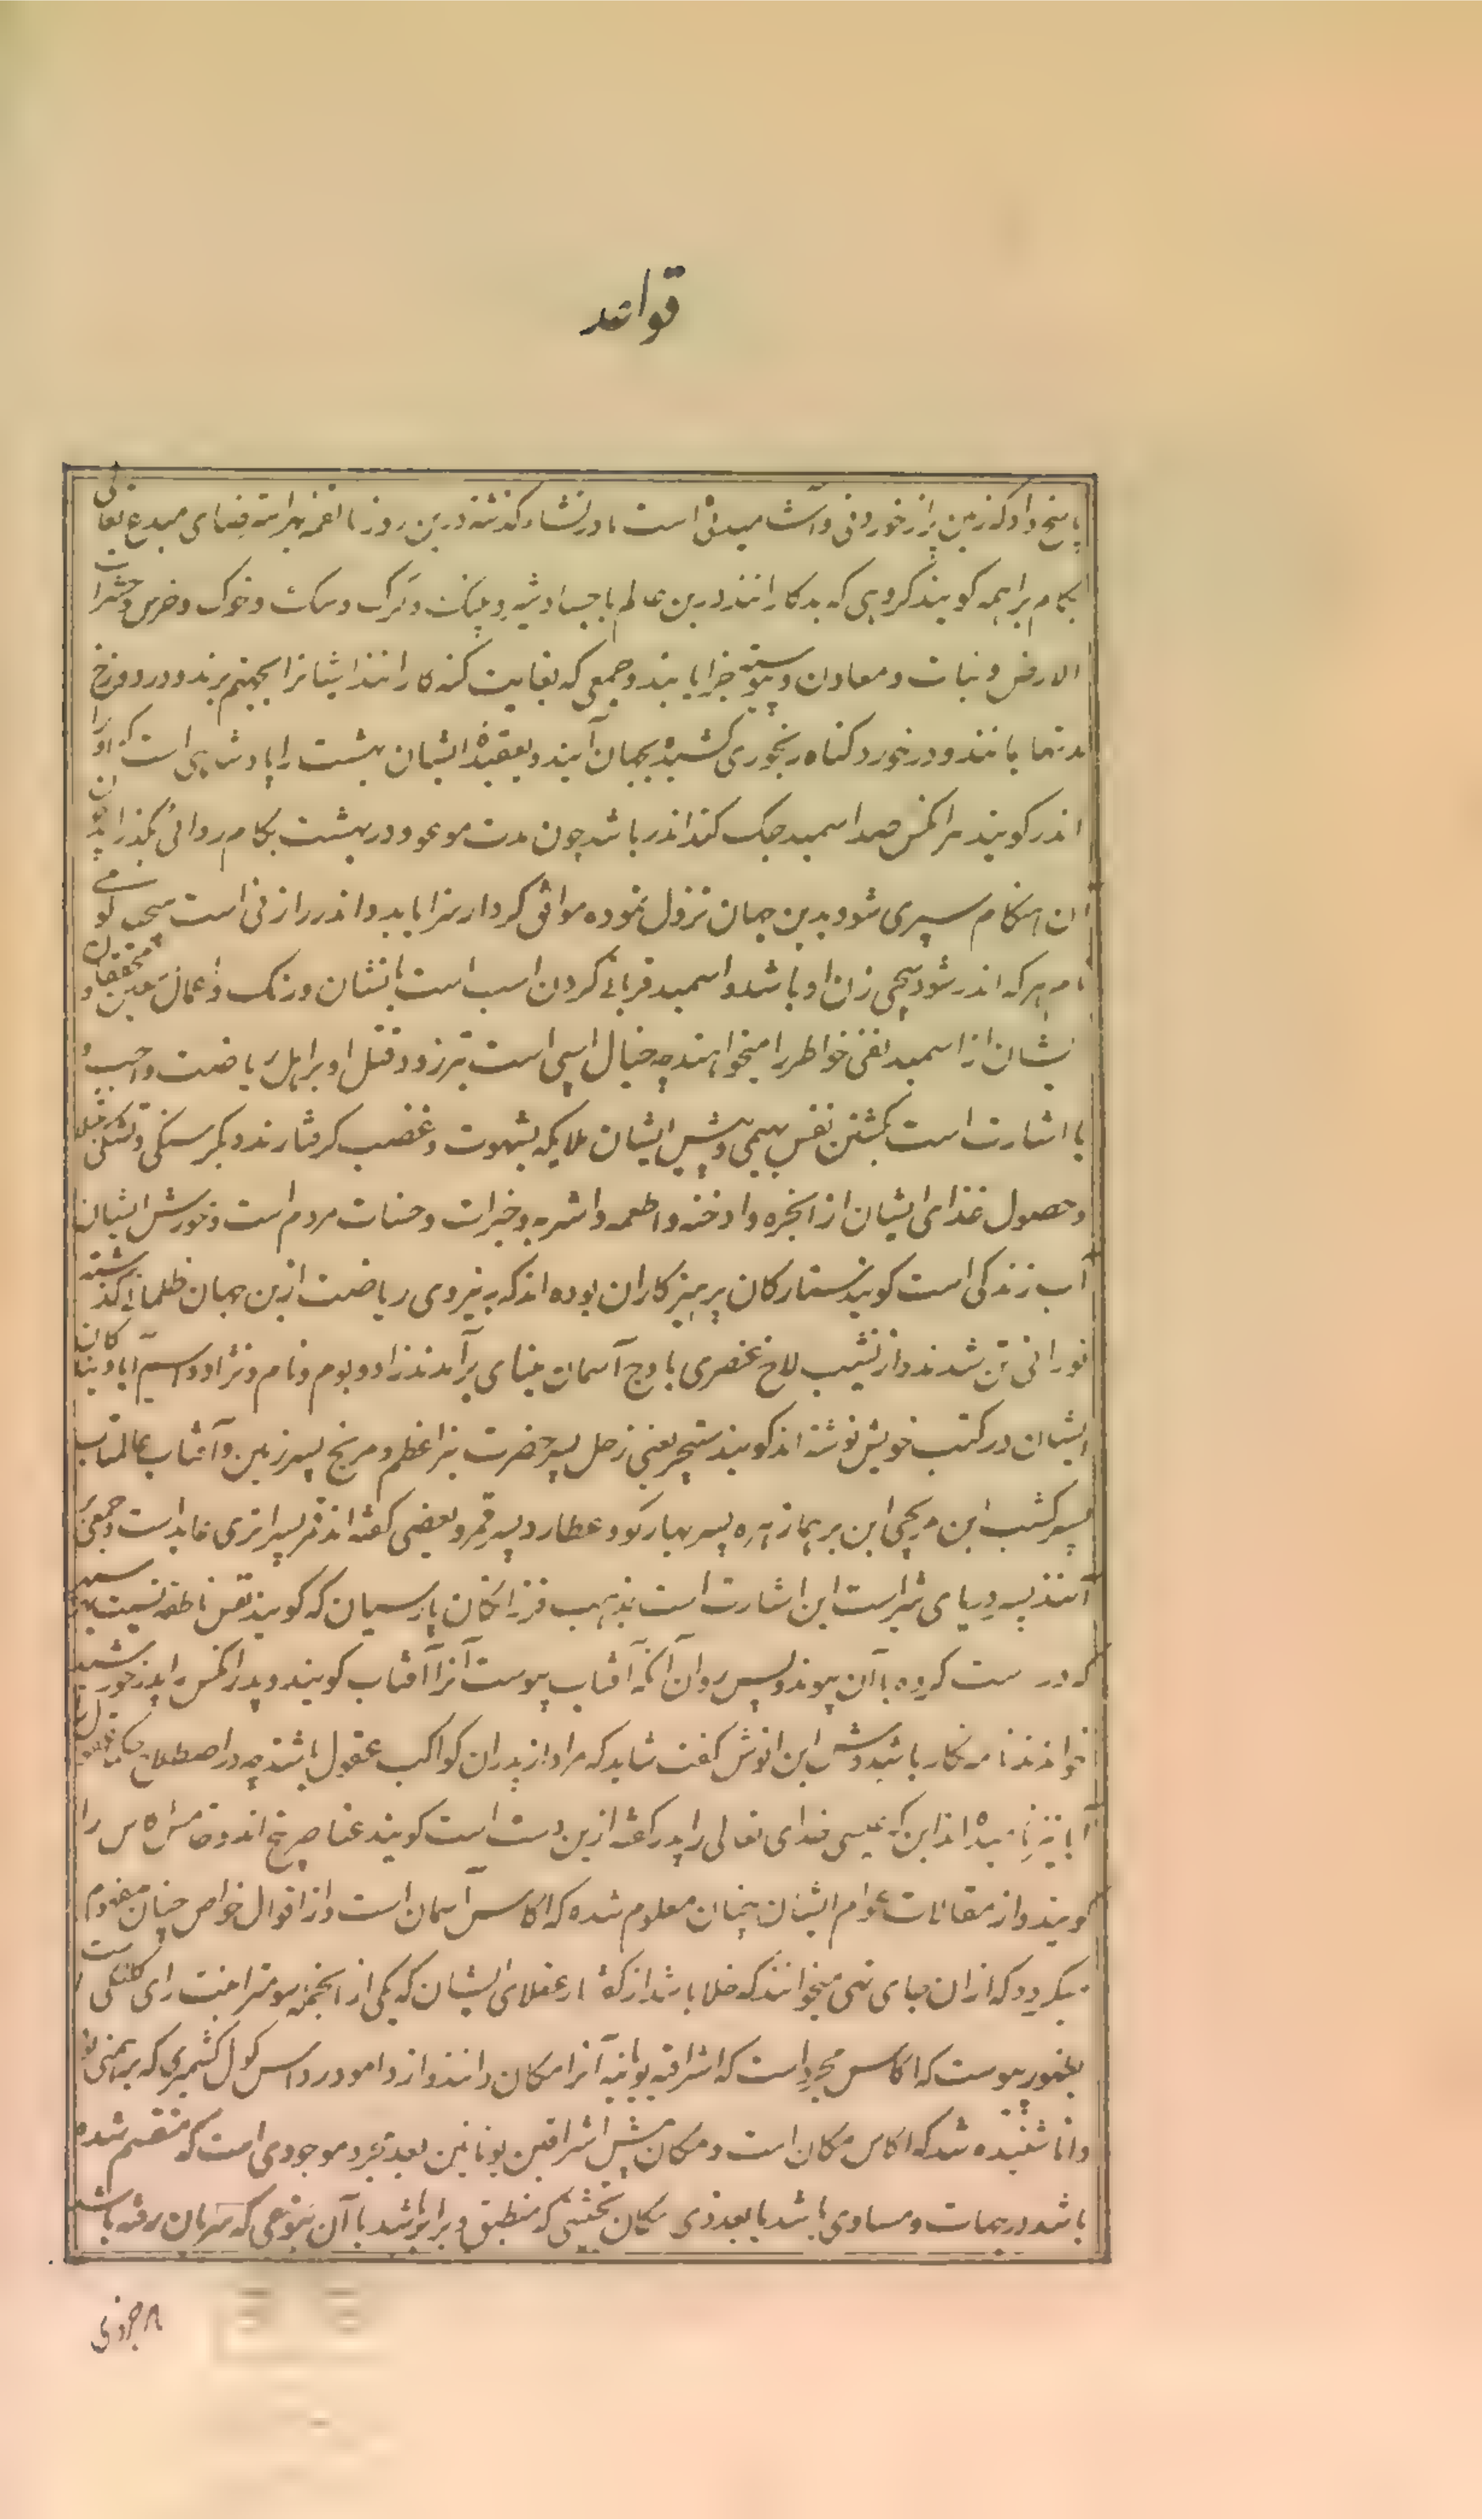 قواعد
پاسخ داد که زمین پر از خوردنی و آشامیدنی است ما در نشاء گذشته درین روز با نغمه بهرامته قضای مبدع تعالی
بکام براهمه گویند گروهی که بدکارانند درین عالم باجساد شیر و پلنگ و گرگ و سگ و خوک و خرس و حشرات
الارض و نبات و معادن پیوسته جزا یابند و جمعی که بغایت گنه کارانند ایشانرا بجهنم برند و در دوزخ
مدتها بمانند و در خورد گناه رنجوری کشیده بجهان آیند و بعقیده ایشان بهشت را پادشاهی است که او را
اندر گویند هر آنکس صد اسمید جک کند اندر باشد چون مدت موعود در بهشت بکام روائی بگذراند
آن هنگام سپری شود بدین جهان نزول نموده موافق کردار سزا یابد و اندر را زنی است سچی
نام هر که اندر شود سچی زن او باشد و اسمید قربانی کردن اسب است بانشان و رنگ و اعمال معین و محققان
ایشان از اسمید نفی خواطر را میخواهند چه خیال اسپی است تیزرو و قتل او بر اهل ریاضت واجب و
یا اشارت است بکشتن نفس بهیمی و پیش ایشان ملایکه بشهوت و غضب گرفتارند و بگرسنگی و تشنگی مبتلا
و حصول غذای ایشان از ابخره و ادخنه و اطعمه و اشربه و خیرات و حسنات مردم است و خورش ایشان
آب زندگی است گویند ستارگان پرهیزکاران بوده اند که به نیروی ریاضت ازین جهان ظلمانی گذشته
نورانی تن شدند و از نشیب لاخ عنصری باوج آسمان مینای برآمدند زاد و بوم و نام و نژاد و اسم آبا و نیاکان
ایشان در کتب خویش نوشته اند گویند سنیچر یعنی زحل پسر حضرت نیر اعظم و مریخ پسر زمین و آفتاب عالمتاب
پسر کشب ابن مریچی ابن برهما زهره پسر بهار کو و عطارد پسر قمر و بعضی گفته اند قمر پسر اتری عابد است و جمعی
آنند پسر دریای شیر است این اشارت است بمذهب فرزانگان پارسیان که گویند نفس ناطقه نسبت بهر
که درست کرده باآن پیوندد پس روان آنکه آفتاب پیوست آنرا آفتاب گویند و پدر آنکس را پدر خورشید
خوانند نامه نگار باشیدوش ابن انوش گفت شاید که مراد از پدران کواکب عقول باشند چه در اصطلاح حکما عقول را
آبا نیز نامیده اند این که عیسی خدای تعالی را پدر گفته ازین دست است گویند عناصر پنج اند و خامس اکاس را
گویند و از مقالات عوام ایشان چنان معلوم شده که اکاس آسمان است و از اقوال خواص چنان مفهوم
میگردد که ازان جای تهی میخوانند که خلا باشد از عقلای ایشان که یکی از انجمله سومترا خبت رای کلنکی است
بظهور پیوست که اکاس مجرد است که اشراقیه یونانیه آنرا مکان دانند و از دامودر داس کول کشمیری که برهمنی بود
دانا شنیده شد که اکاس مکان است و مکان پیش اشراقین یونانین بعد مجرد موجودی است که منقسم شده
باشد در جهات و مساوی باشد با بعد ذی مکان بحیثیتی که منطبق و برابر باشد باآن بنوعی که سریان رفته باشد